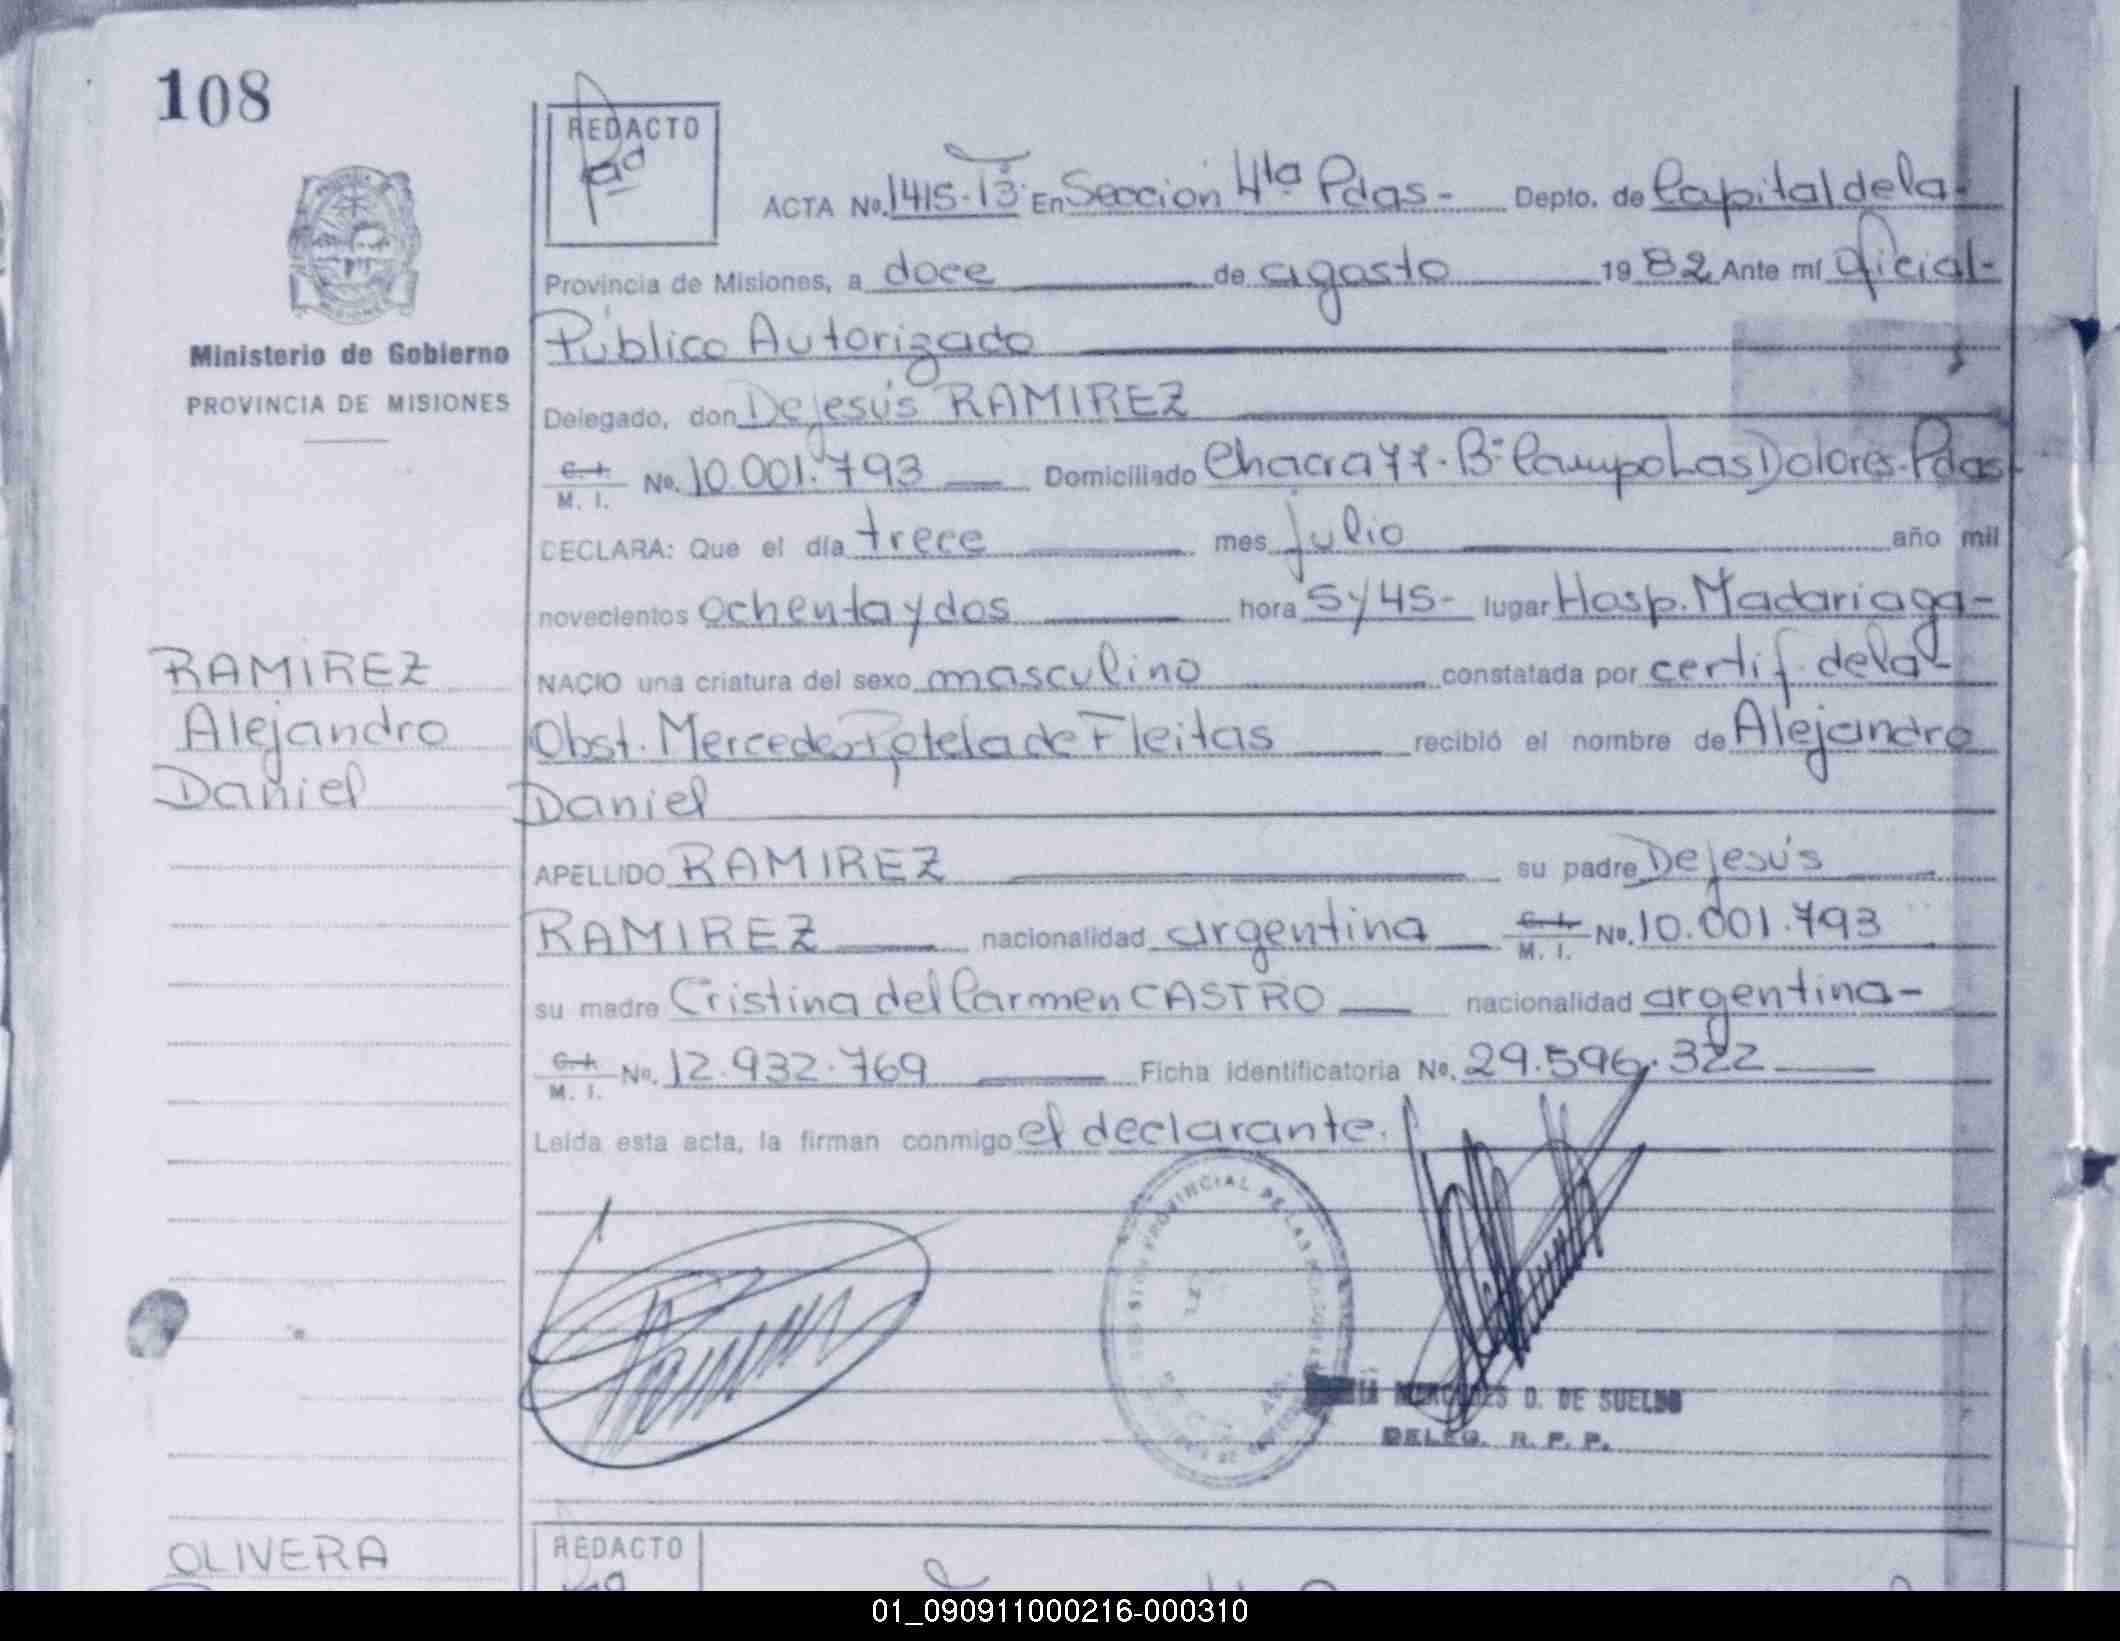 108
REDACTO
ACTA No. 1415-Tº3 En Sección 4ta Pdas- Depto. de Capital de la-
Provincia de Misiones, a doce de agosto 1982 Ante mí Oficial-
Público Autorizado
Ministerio de Gobierno
PROVINCIA DE MISIONES
Delegado, don De Jesús RAMIREZ
C. I.
M. I. No. 10.001.793 Domiciliado Chacra 77. Bº Campo Las Dolores. Pdas-
DECLARA: Que el día trece mes julio año mil
novecientos ochenta y dos hora 5 y 45- lugar Hosp. Madariaga-
RAMIREZ
Alejandro
Daniel
NACIO una criatura del sexo masculino constatada por certif. de la-
Obst. Mercedes Potela de Fleitas recibió el nombre de Alejandro
Daniel
APELLIDO RAMIREZ su padre De Jesús
RAMIREZ nacionalidad argentina C. I.
M. I. No. 10.001.793
su madre Cristina del Carmen CASTRO nacionalidad argentina-
C. I.
M. I. No. 12.932.769 Ficha identificatoria No. 29.596.322
Leída esta acta, la firman conmigo el declarante.
PROVINCIAL DE LAS
MERCEDES D. DE SUELDO
DELEG. R. P. P.
OLIVERA
REDACTO
01_090911000216-000310